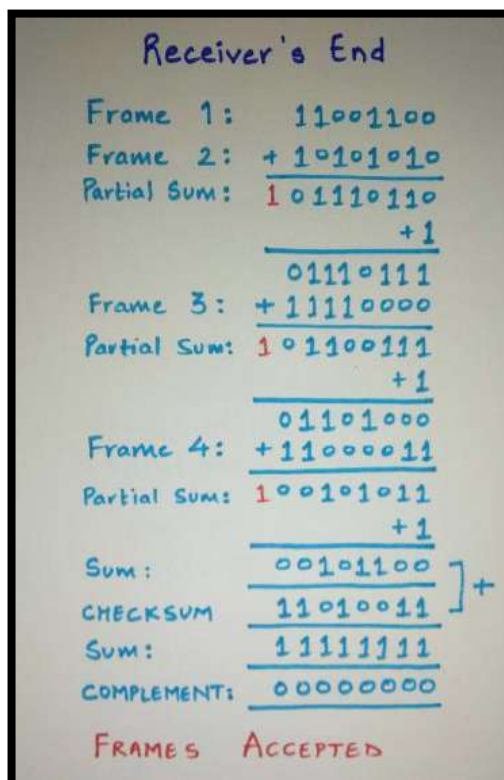 Receiver's End
Frame 1: 11001100
Frame 2: + 10101010
Partial Sum: 1 01110110
+1
01110111
Frame 3: + 11110000
Partial Sum: 1 01100111
+1
01101000
Frame 4: + 11000011
Partial Sum: 1 00101011
+1
Sum: 00101100
CHECKSUM 11010011
+
Sum: 11111111
COMPLEMENT: 00000000
FRAMES ACCEPTED